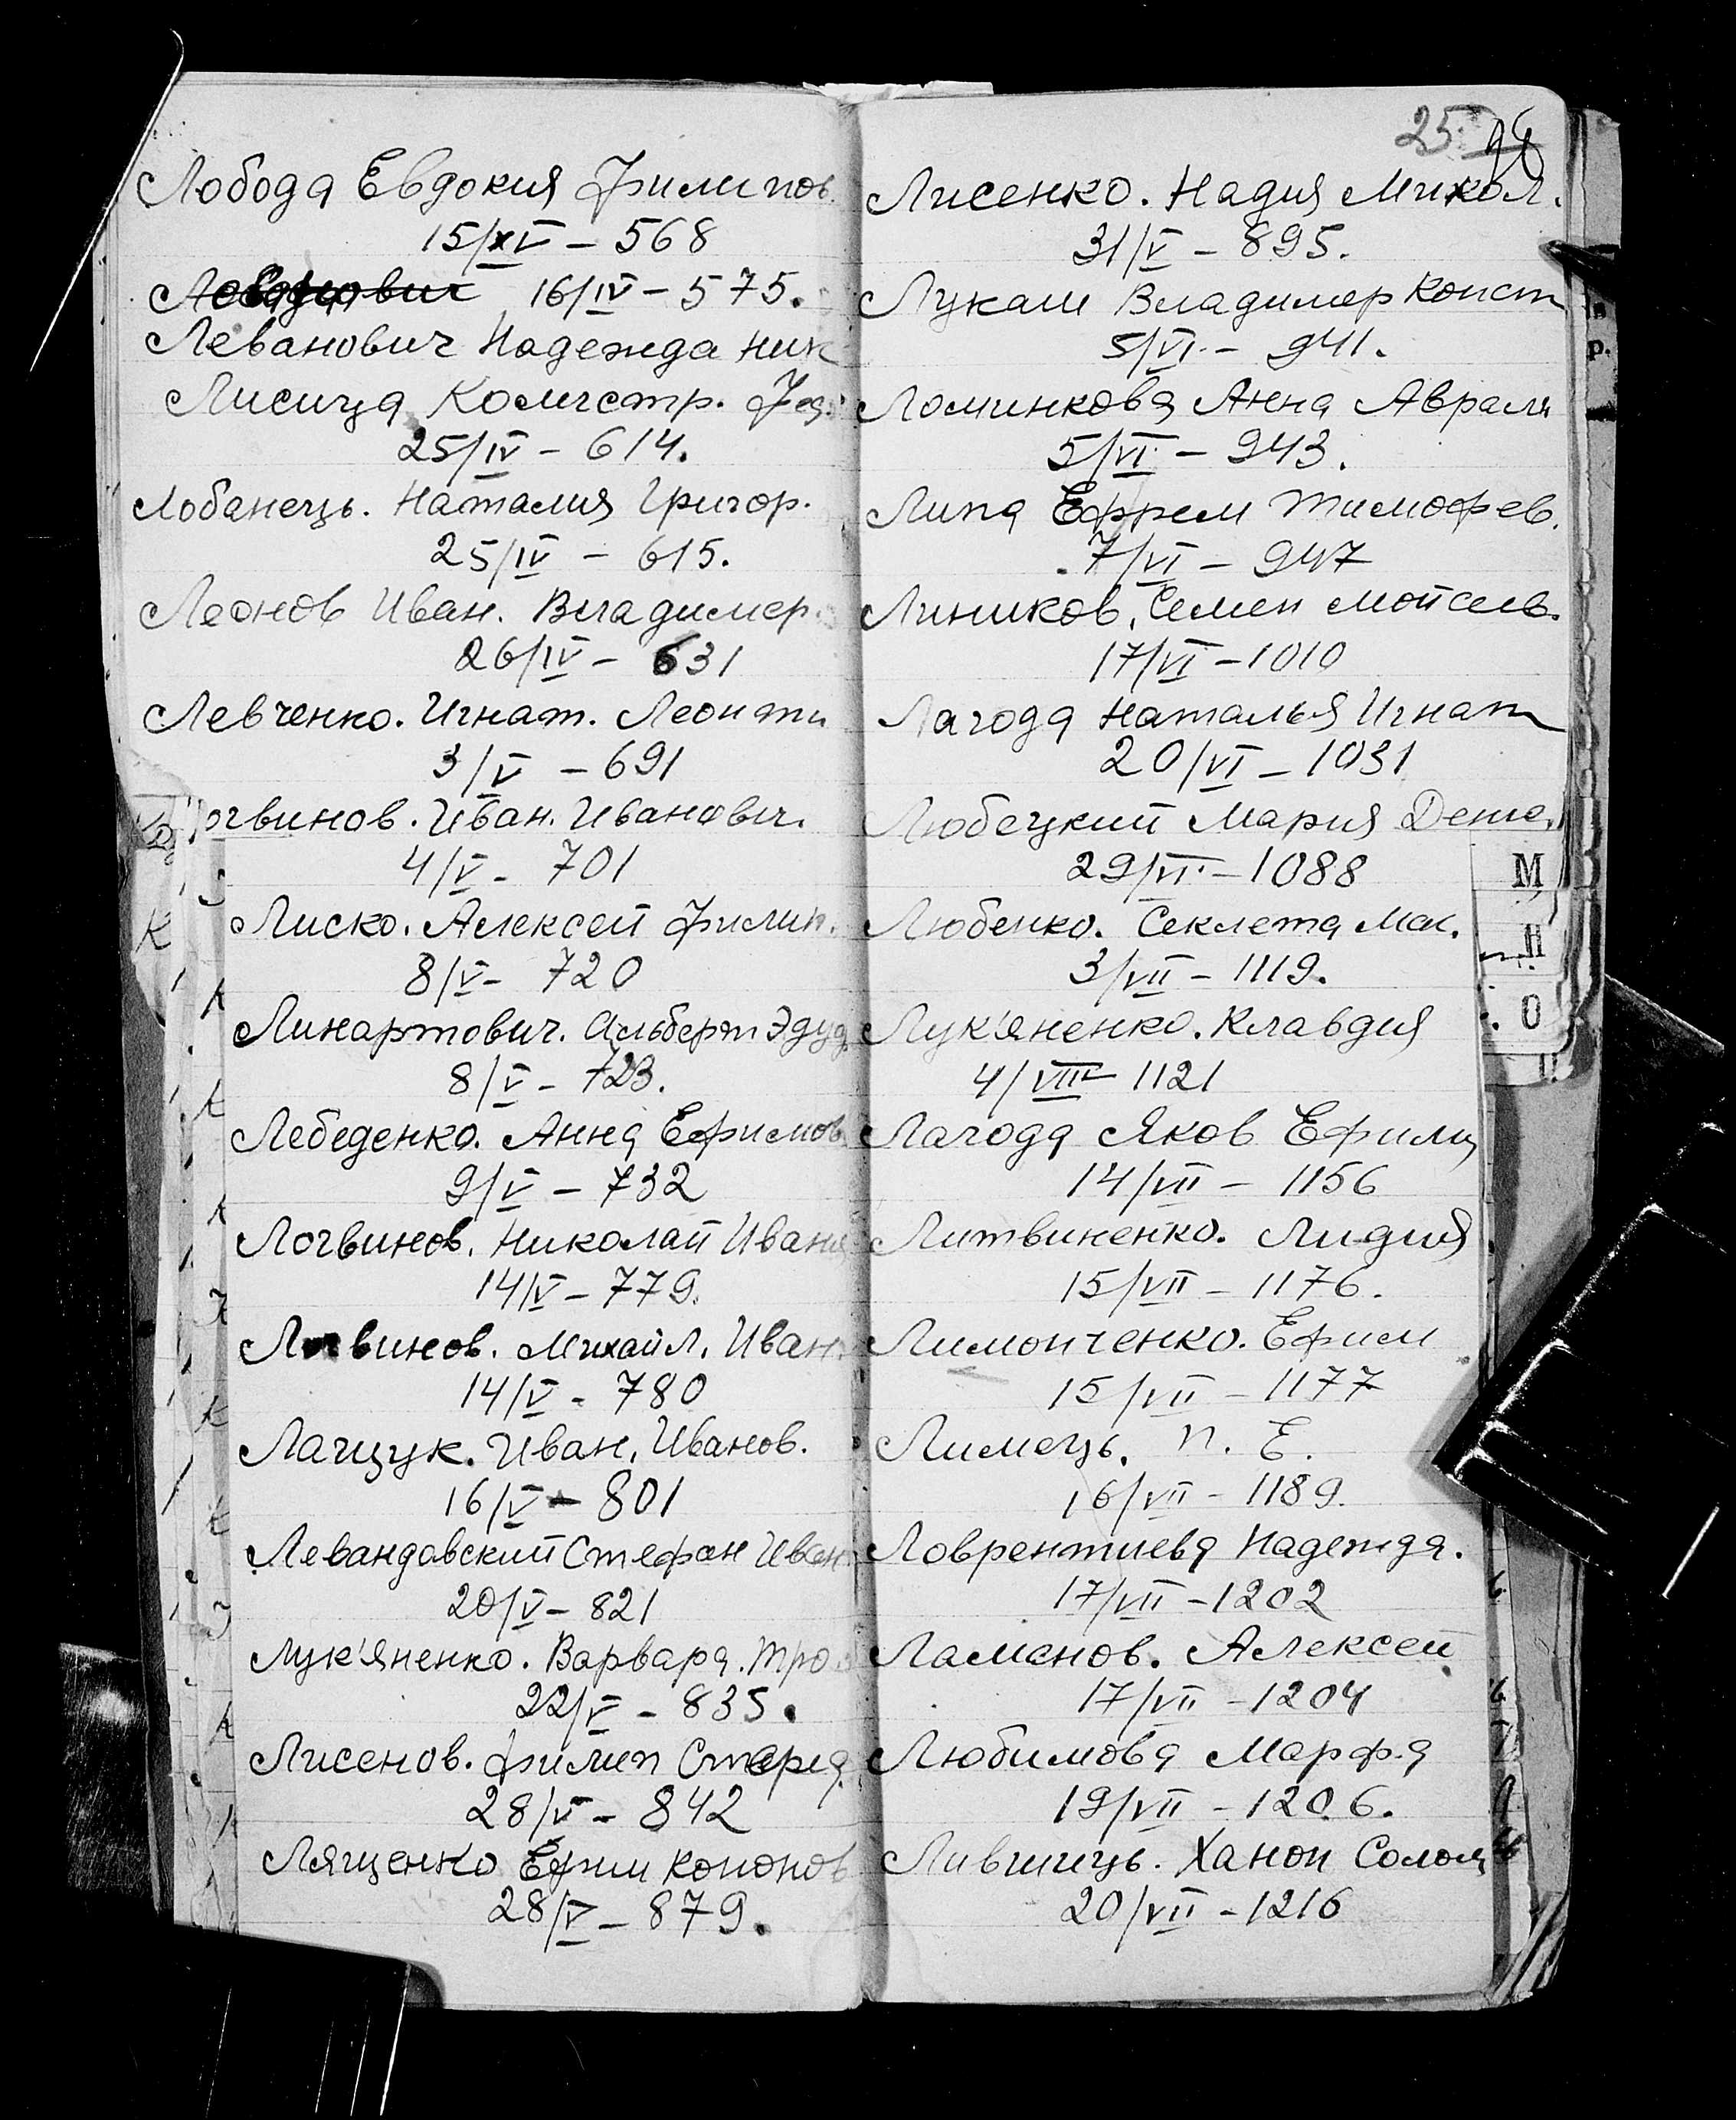 Лобода Евдокия Филипов.
15/IV – 568
16/IV – 575.
Леванович Надежда Ник
Лисица Колистр. Фед.
25/IV – 614.
Лобанець. Наталия Григор.
25/IV – 615.
Леонов Иван. Владимер.
26/IV – 631
Левченко. Игнат. Леонти
3/V – 691
огвинов. Иван. Иванович.
4/V – 701
Лиско. Алексей Филип.
8/V – 720
Линартович. Альберт Эдуд.
8/V – 723.
Лебеденко. Анна Ефимов.
9/V – 732
Логвинов. Николай Ивано
14/V – 779.
Логвинов. Михайл. Иван.
14/V – 780
Лащук. Иван. Иванов.
16/V – 801
Левандовский Стефан Иван
20/V – 821
Лук'яненко. Варвара. Тро
22/V – 835.
Лисенов. Филип
28/V – 842
Лященко Ефим Кононов
28/V – 879.
25.
Лисенко. Надия Микол.
31/V – 895.
Лукаш Владимер Конст
5/VI – 941.
Ломинкова Анна Аврам
5/VI – 943.
Липа Ефрем Тимофев.
7/VI – 947
Лиников, Семен Мойсеев.
17/VI – 1010
Лагода Наталья Игнат
20/VI – 1031
Любецкий Мария Деме.
29/VI – 1088
Любенко. Секлета Мак.
3/VII – 1119.
Лук'яненко. Клавдия
4/VII – 1121
Лагода Яков Ефим
14/VII – 1156
Литвиненко. Лидия
15/VII – 1176.
Лимонченко. Ефим
15/VII – 1177
Лимець. П. Е.
16/VII – 1189.
Ловрентиева Надежда.
17/VII – 1202
Ламанов. Алексей
17/VII – 1204
Любимова Марфа
19/VII – 1206.
Лившиць. Ханон Солом
20/VII – 1216
М
Н
О